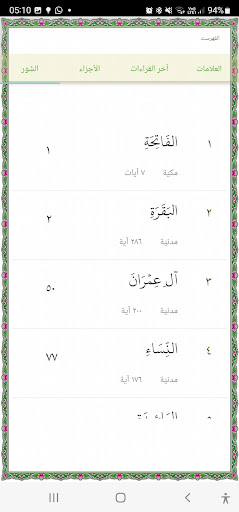 05:10
94%
الفهرست
العلامات آخر القراءات الأجزاء السُّوَر
١ الفَاتِحَةِ ١
مكية ٧ آيات
٢ البَقَرَةِ ٢
مدنية ٢٨٦ آية
٣ آل عِمْرَانَ ٥٠
مدنية ٢٠٠ آية
٤ النِّسَاءِ ٧٧
مدنية ١٧٦ آية